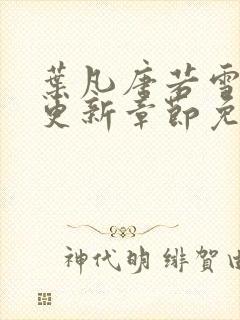 葉凡唐若雪
更新章節免
神代明 緋賀由